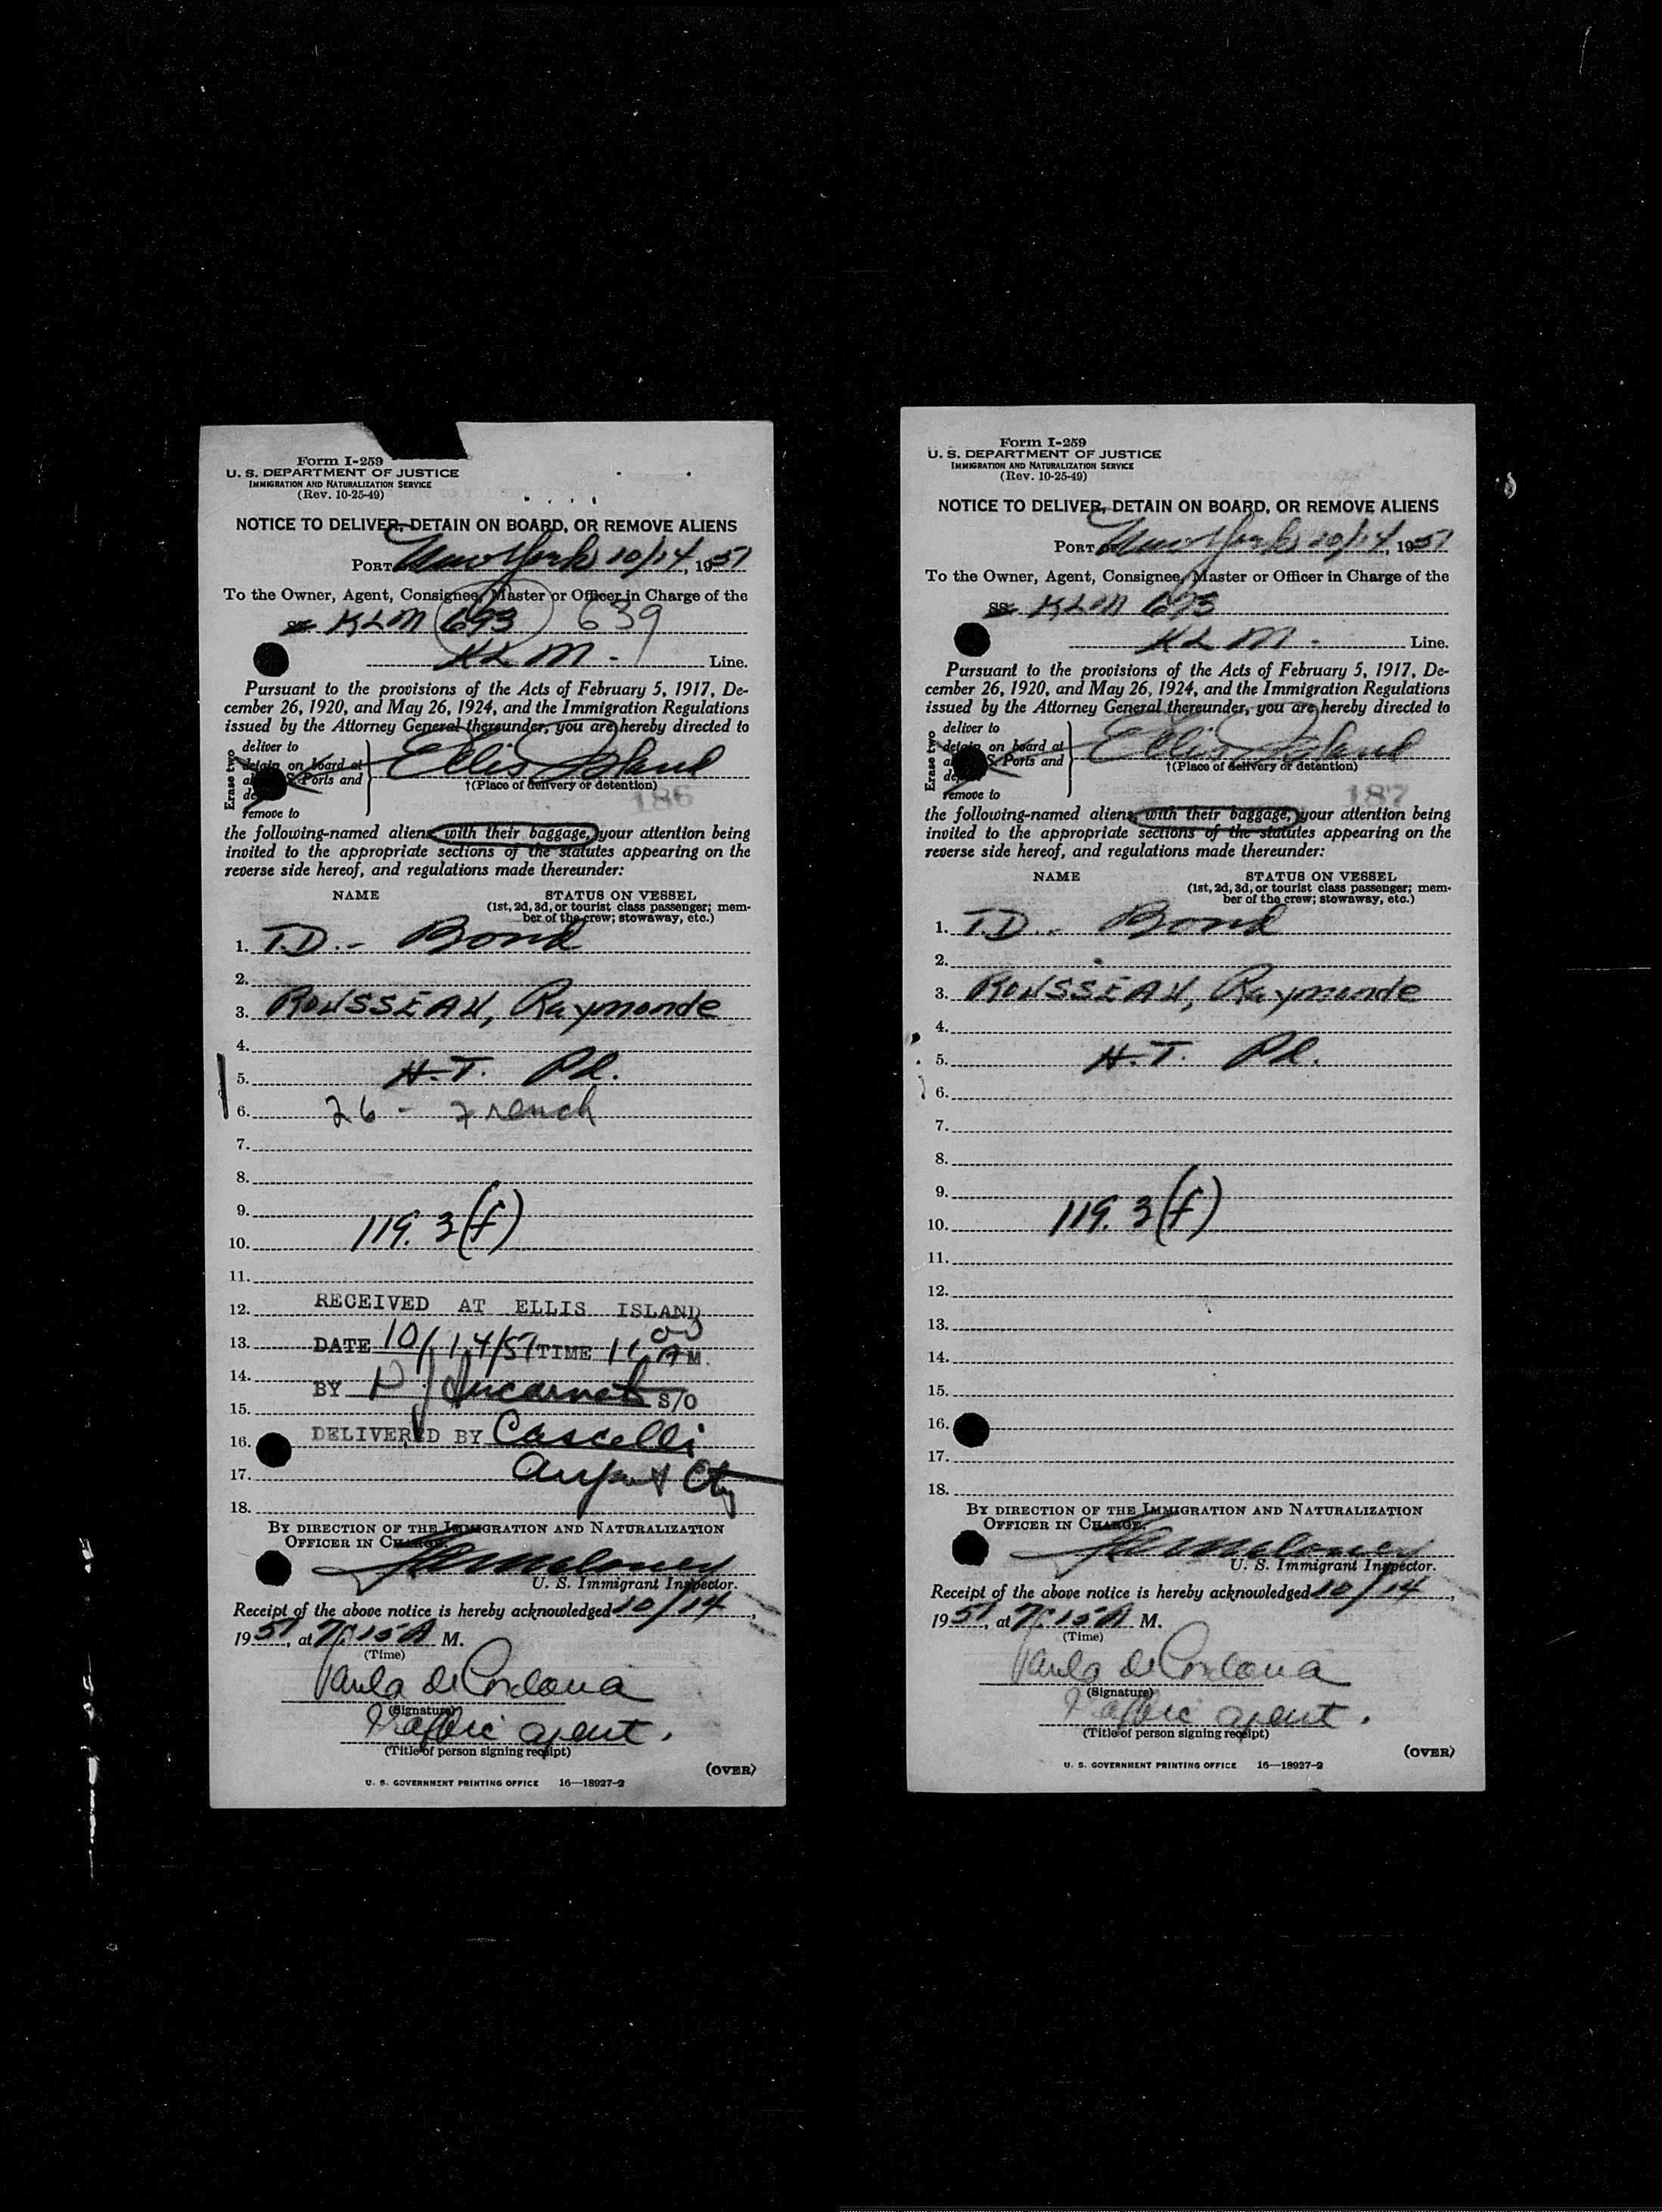 Form I-259
U. S. DEPARTMENT OF JUSTICE
IMMIGRATION AND NATURALIZATION SERVICE
(Rev. 10-25-49)
NOTICE TO DELIVER, DETAIN ON BOARD, OR REMOVE ALIENS
PORT OF New York 10/14, 1951
To the Owner, Agent, Consignee, Master or Officer in Charge of the
SS KLM 693 639
KLM - Line.
Pursuant to the provisions of the Acts of February 5, 1917, De-
cember 26, 1920, and May 26, 1924, and the Immigration Regulations
issued by the Attorney General thereunder, you are hereby directed to
Erase two
deliver to
detain on board at
S. Ports and
remove to
Ellis Island
†(Place of delivery or detention)
186
the following-named aliens with their baggage, your attention being
invited to the appropriate sections of the statutes appearing on the
reverse side hereof, and regulations made thereunder:
NAME STATUS ON VESSEL
(1st, 2d, 3d, or tourist class passenger; mem-
ber of the crew; stowaway, etc.)
1. T.D. - Bond
2.
3. ROUSSEAU, Raymonde
4.
5. H.T. Pl.
6. 26 - French
7.
8.
9.
10. 119. 3(f)
11.
12. RECEIVED AT ELLIS ISLAND
13. DATE 10/14/51 TIME 11 00 AM.
14.
BY S/O
15.
16. DELIVERED BY Cascelli
17. Airport Cty
18.
BY DIRECTION OF THE IMMIGRATION AND NATURALIZATION
OFFICER IN CHARGE.
U. S. Immigrant Inspector.
Receipt of the above notice is hereby acknowledged 10/14,
1951, at 7:15 A M.
(Time)
Paula de Cordova
(Signature)
Traffic agent.
(Title of person signing receipt)
(OVER)
U. S. GOVERNMENT PRINTING OFFICE 16—18927-2
Form I-259
U. S. DEPARTMENT OF JUSTICE
IMMIGRATION AND NATURALIZATION SERVICE
(Rev. 10-25-49)
NOTICE TO DELIVER, DETAIN ON BOARD, OR REMOVE ALIENS
PORT OF New York 10/14, 1951
To the Owner, Agent, Consignee, Master or Officer in Charge of the
SS KLM 693
KLM - Line.
Pursuant to the provisions of the Acts of February 5, 1917, De-
cember 26, 1920, and May 26, 1924, and the Immigration Regulations
issued by the Attorney General thereunder, you are hereby directed to
Erase two
deliver to
detain on board at
S. Ports and
remove to
Ellis Island
†(Place of delivery or detention)
187
the following-named aliens with their baggage, your attention being
invited to the appropriate sections of the statutes appearing on the
reverse side hereof, and regulations made thereunder:
NAME STATUS ON VESSEL
(1st, 2d, 3d, or tourist class passenger; mem-
ber of the crew; stowaway, etc.)
1. T.D. - Bond
2.
3. ROUSSEAU, Raymonde
4.
5. H.T. Pl.
6.
7.
8.
9.
10. 119. 3(f)
11.
12.
13.
14.
15.
16.
17.
18.
BY DIRECTION OF THE IMMIGRATION AND NATURALIZATION
OFFICER IN CHARGE.
U. S. Immigrant Inspector.
Receipt of the above notice is hereby acknowledged 10/14,
1951, at 7:15 A M.
(Time)
Paula de Cordova
(Signature)
Traffic agent.
(Title of person signing receipt)
(OVER)
U. S. GOVERNMENT PRINTING OFFICE 16—18927-2